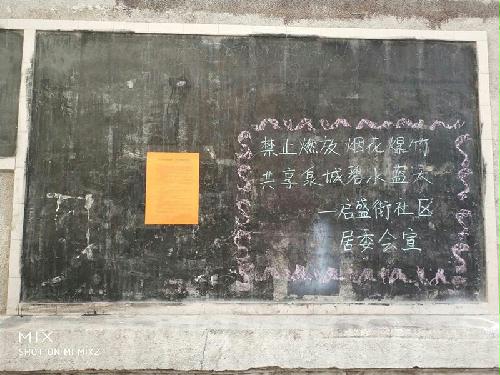 禁止燃放烟花爆竹
共享泉城碧水蓝天
一启盛街社区
居委会宣
MIX
SHOT ON MI MIX2